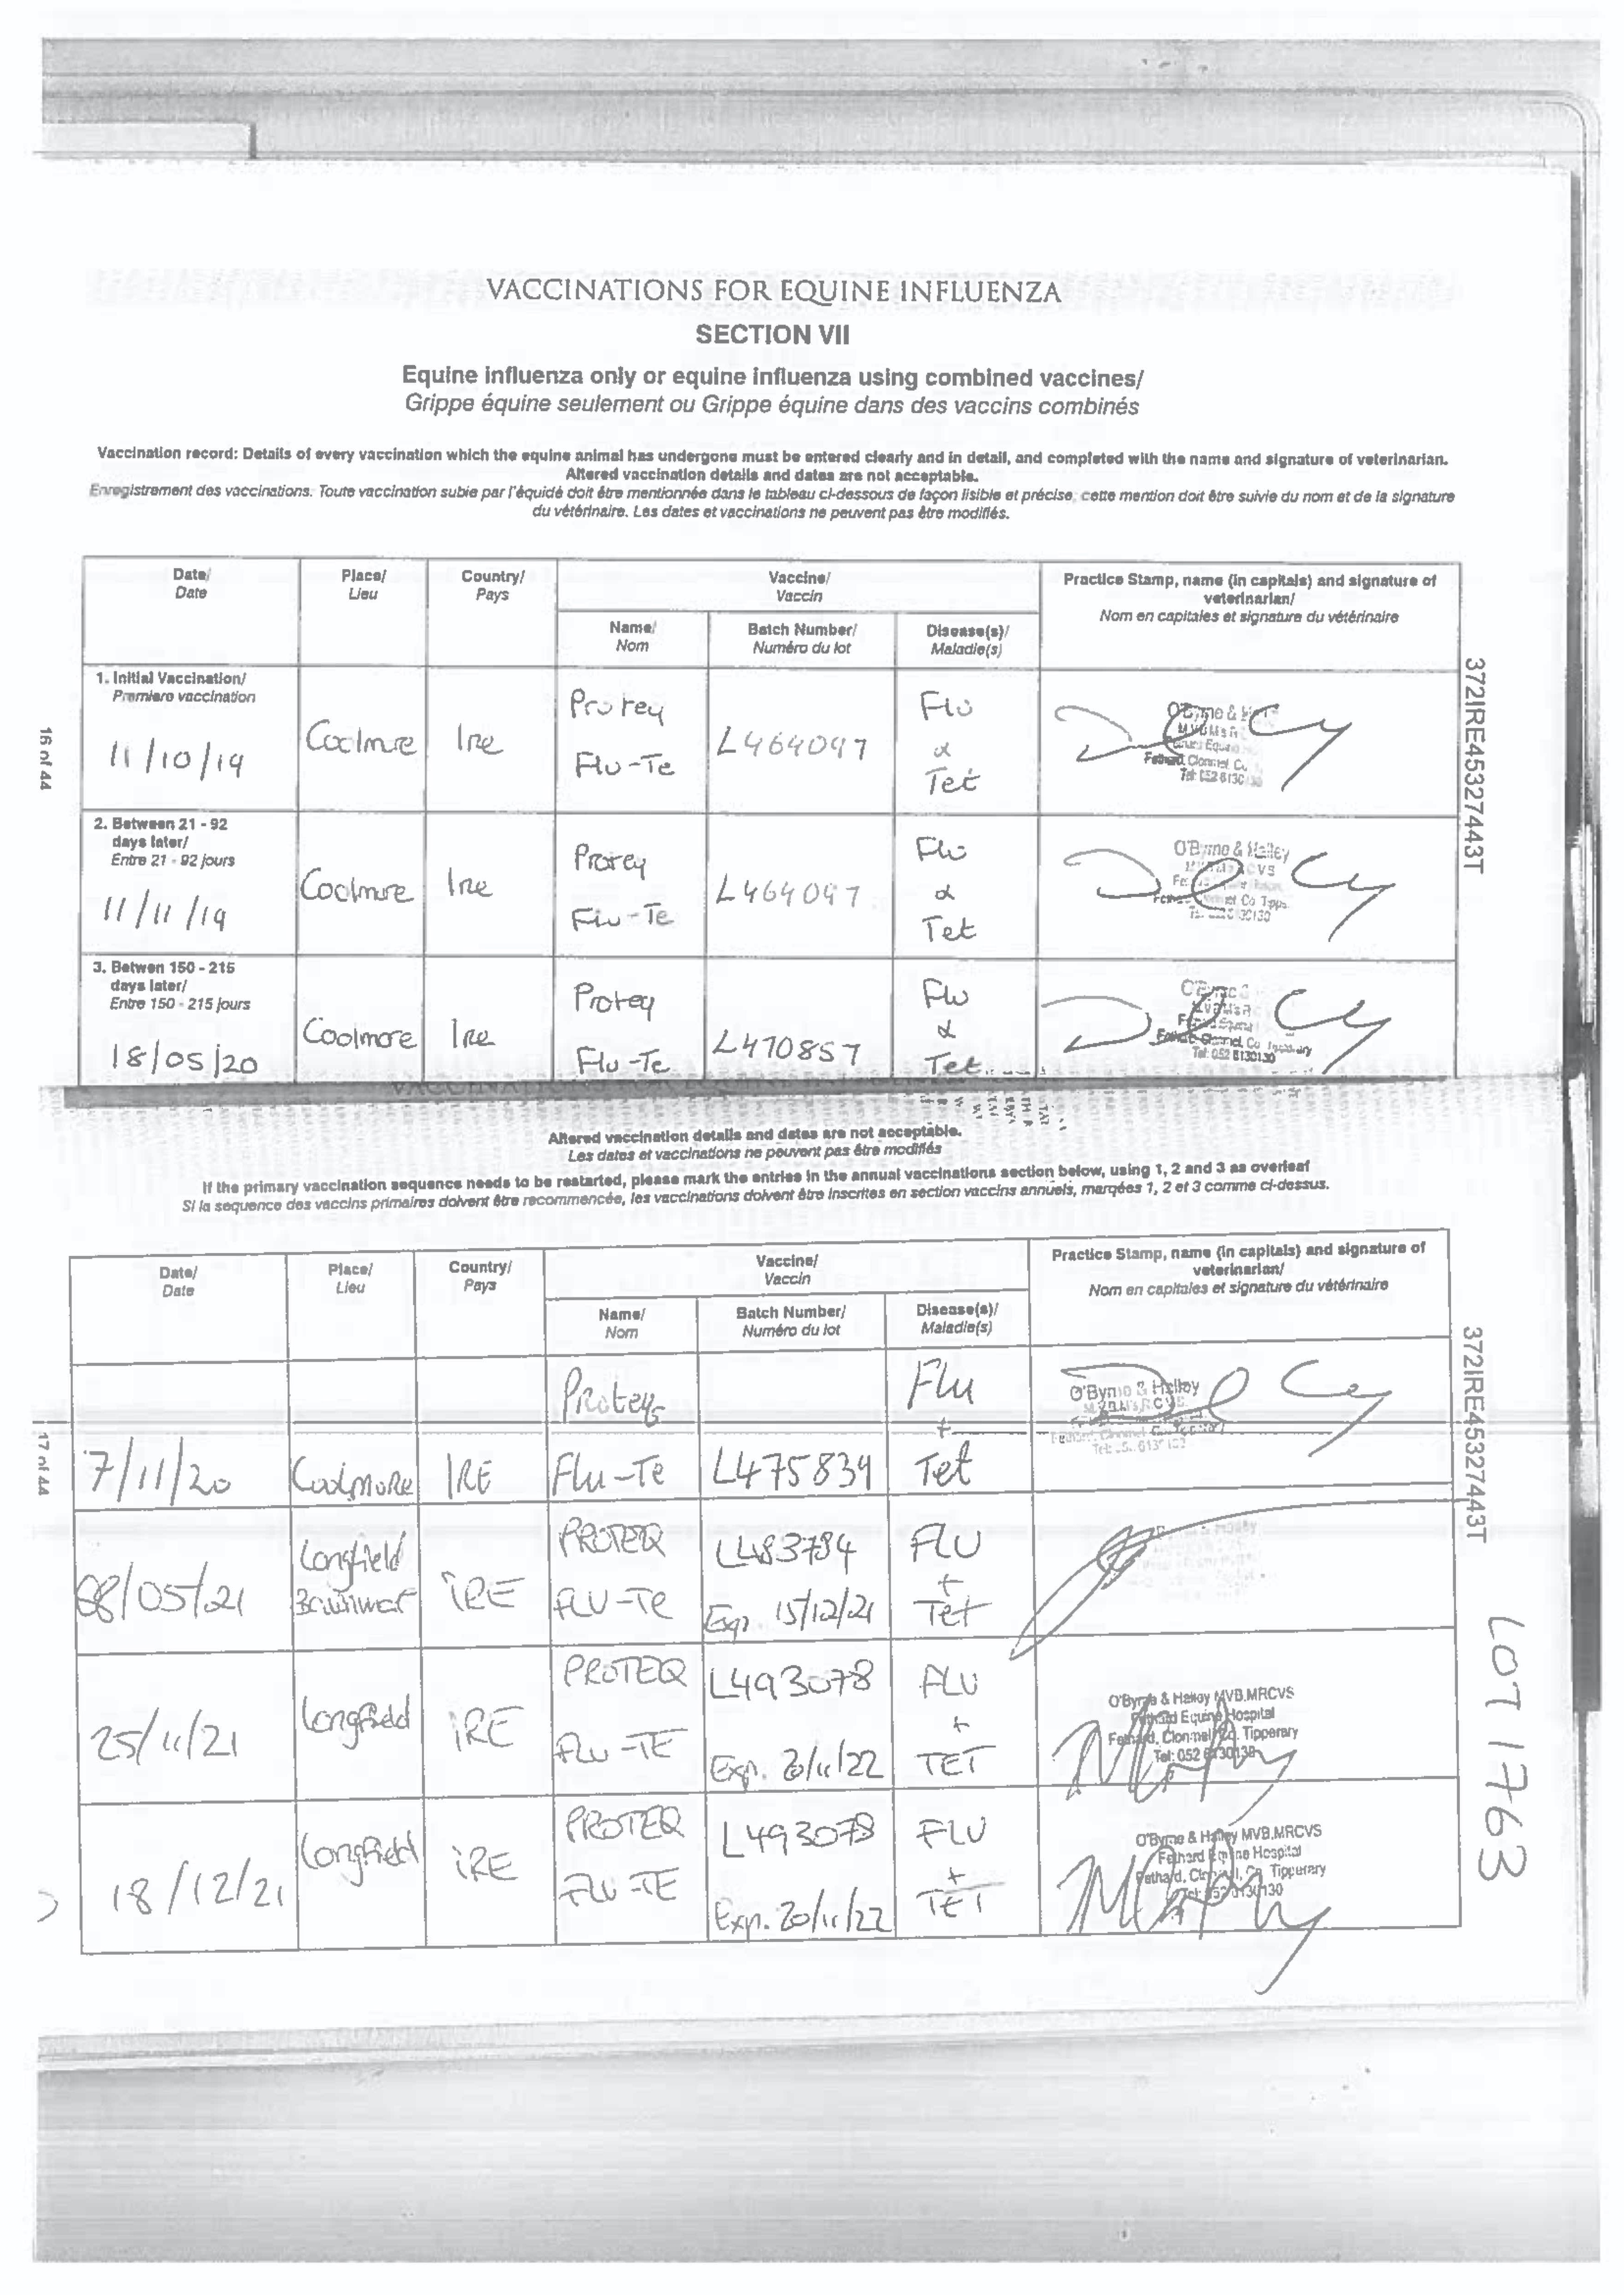 VACCINATIONS FOR EQUINE INFLUENZA
SECTION VII
Equine influenza only or equine influenza using combined vaccines/
Grippe équine seulement ou Grippe équine dans des vaccins combinés
Vaccination record: Details of every vaccination which the equine animal has undergone must be entered clearly and in detail, and completed with the name and signature of veterinarian.
Altered vaccination details and dates are not acceptable.
Enregistrement des vaccinations. Toute vaccination subie par l'équidé doit être mentionnée dans le tableau ci-dessous de façon lisible et précise, cette mention doit être suivie du nom et de la signature
du vétérinaire. Les dates et vaccinations ne peuvent pas être modifiés.
Date/ Place/ Country/ Vaccine/ Practice Stamp, name (in capitals) and signature of
Date Lieu Pays Vaccin veterinarian/
Nom en capitales et signature du vétérinaire
Name/ Batch Number/ Disease(s)/
Nom Numéro du lot Maladie(s)
1. Initial Vaccination/
Premiere vaccination
11/10/19 Coolmore Ire Proteq Flu-Te L464097 Flu & Tet
Fethard, Clonmel, Co.
2. Between 21 - 92
days later/
Entre 21 - 92 jours
11/11/19 Coolmore Ire Proteq Flu-Te L464097 Flu & Tet
O'Byrne & Halley
3. Betwen 150 - 215
days later/
Entre 150 - 215 jours
18/05/20 Coolmore Ire Proteq Flu-Te L470857 Flu & Tet
Tel: 052 6130130
16 of 44
372IRE45327443T
Altered vaccination details and dates are not acceptable.
Les dates et vaccinations ne peuvent pas être modifiés
If the primary vaccination sequence needs to be restarted, please mark the entries in the annual vaccinations section below, using 1, 2 and 3 as overleaf
Si la sequence des vaccins primaires doivent être recommencée, les vaccinations doivent être inscrites en section vaccins annuels, marqées 1, 2 et 3 comme ci-dessus.
Date/ Place/ Country/ Vaccine/ Practice Stamp, name (in capitals) and signature of
Date Lieu Pays Vaccin veterinarian/
Nom en capitales et signature du vétérinaire
Name/ Batch Number/ Disease(s)/
Nom Numéro du lot Maladie(s)
7/11/20 Coolmore IRE Proteq Flu-Te L475839 Flu + Tet
O'Byrne & Halley
08/05/21 Longfield IRE PROTEQ FLU-Te L483784 Exp. 15/12/21 FLU + Tet
25/11/21 Longfield IRE PROTEQ FLU-TE L493078 Exp. 20/11/22 FLU + TET
O'Byrne & Halley MVB.MRCVS
Fethard Equine Hospital
Fethard, Clonmel, Co. Tipperary
Tel: 052 6130130
18/12/21 Longfield IRE PROTEQ FLU-TE L493078 Exp. 20/11/22 FLU + TET
O'Byrne & Halley MVB.MRCVS
Fethard Equine Hospital
Fethard, Clonmel, Co. Tipperary
Tel: 052 6130130
17 of 44
372IRE45327443T
LOT 1763